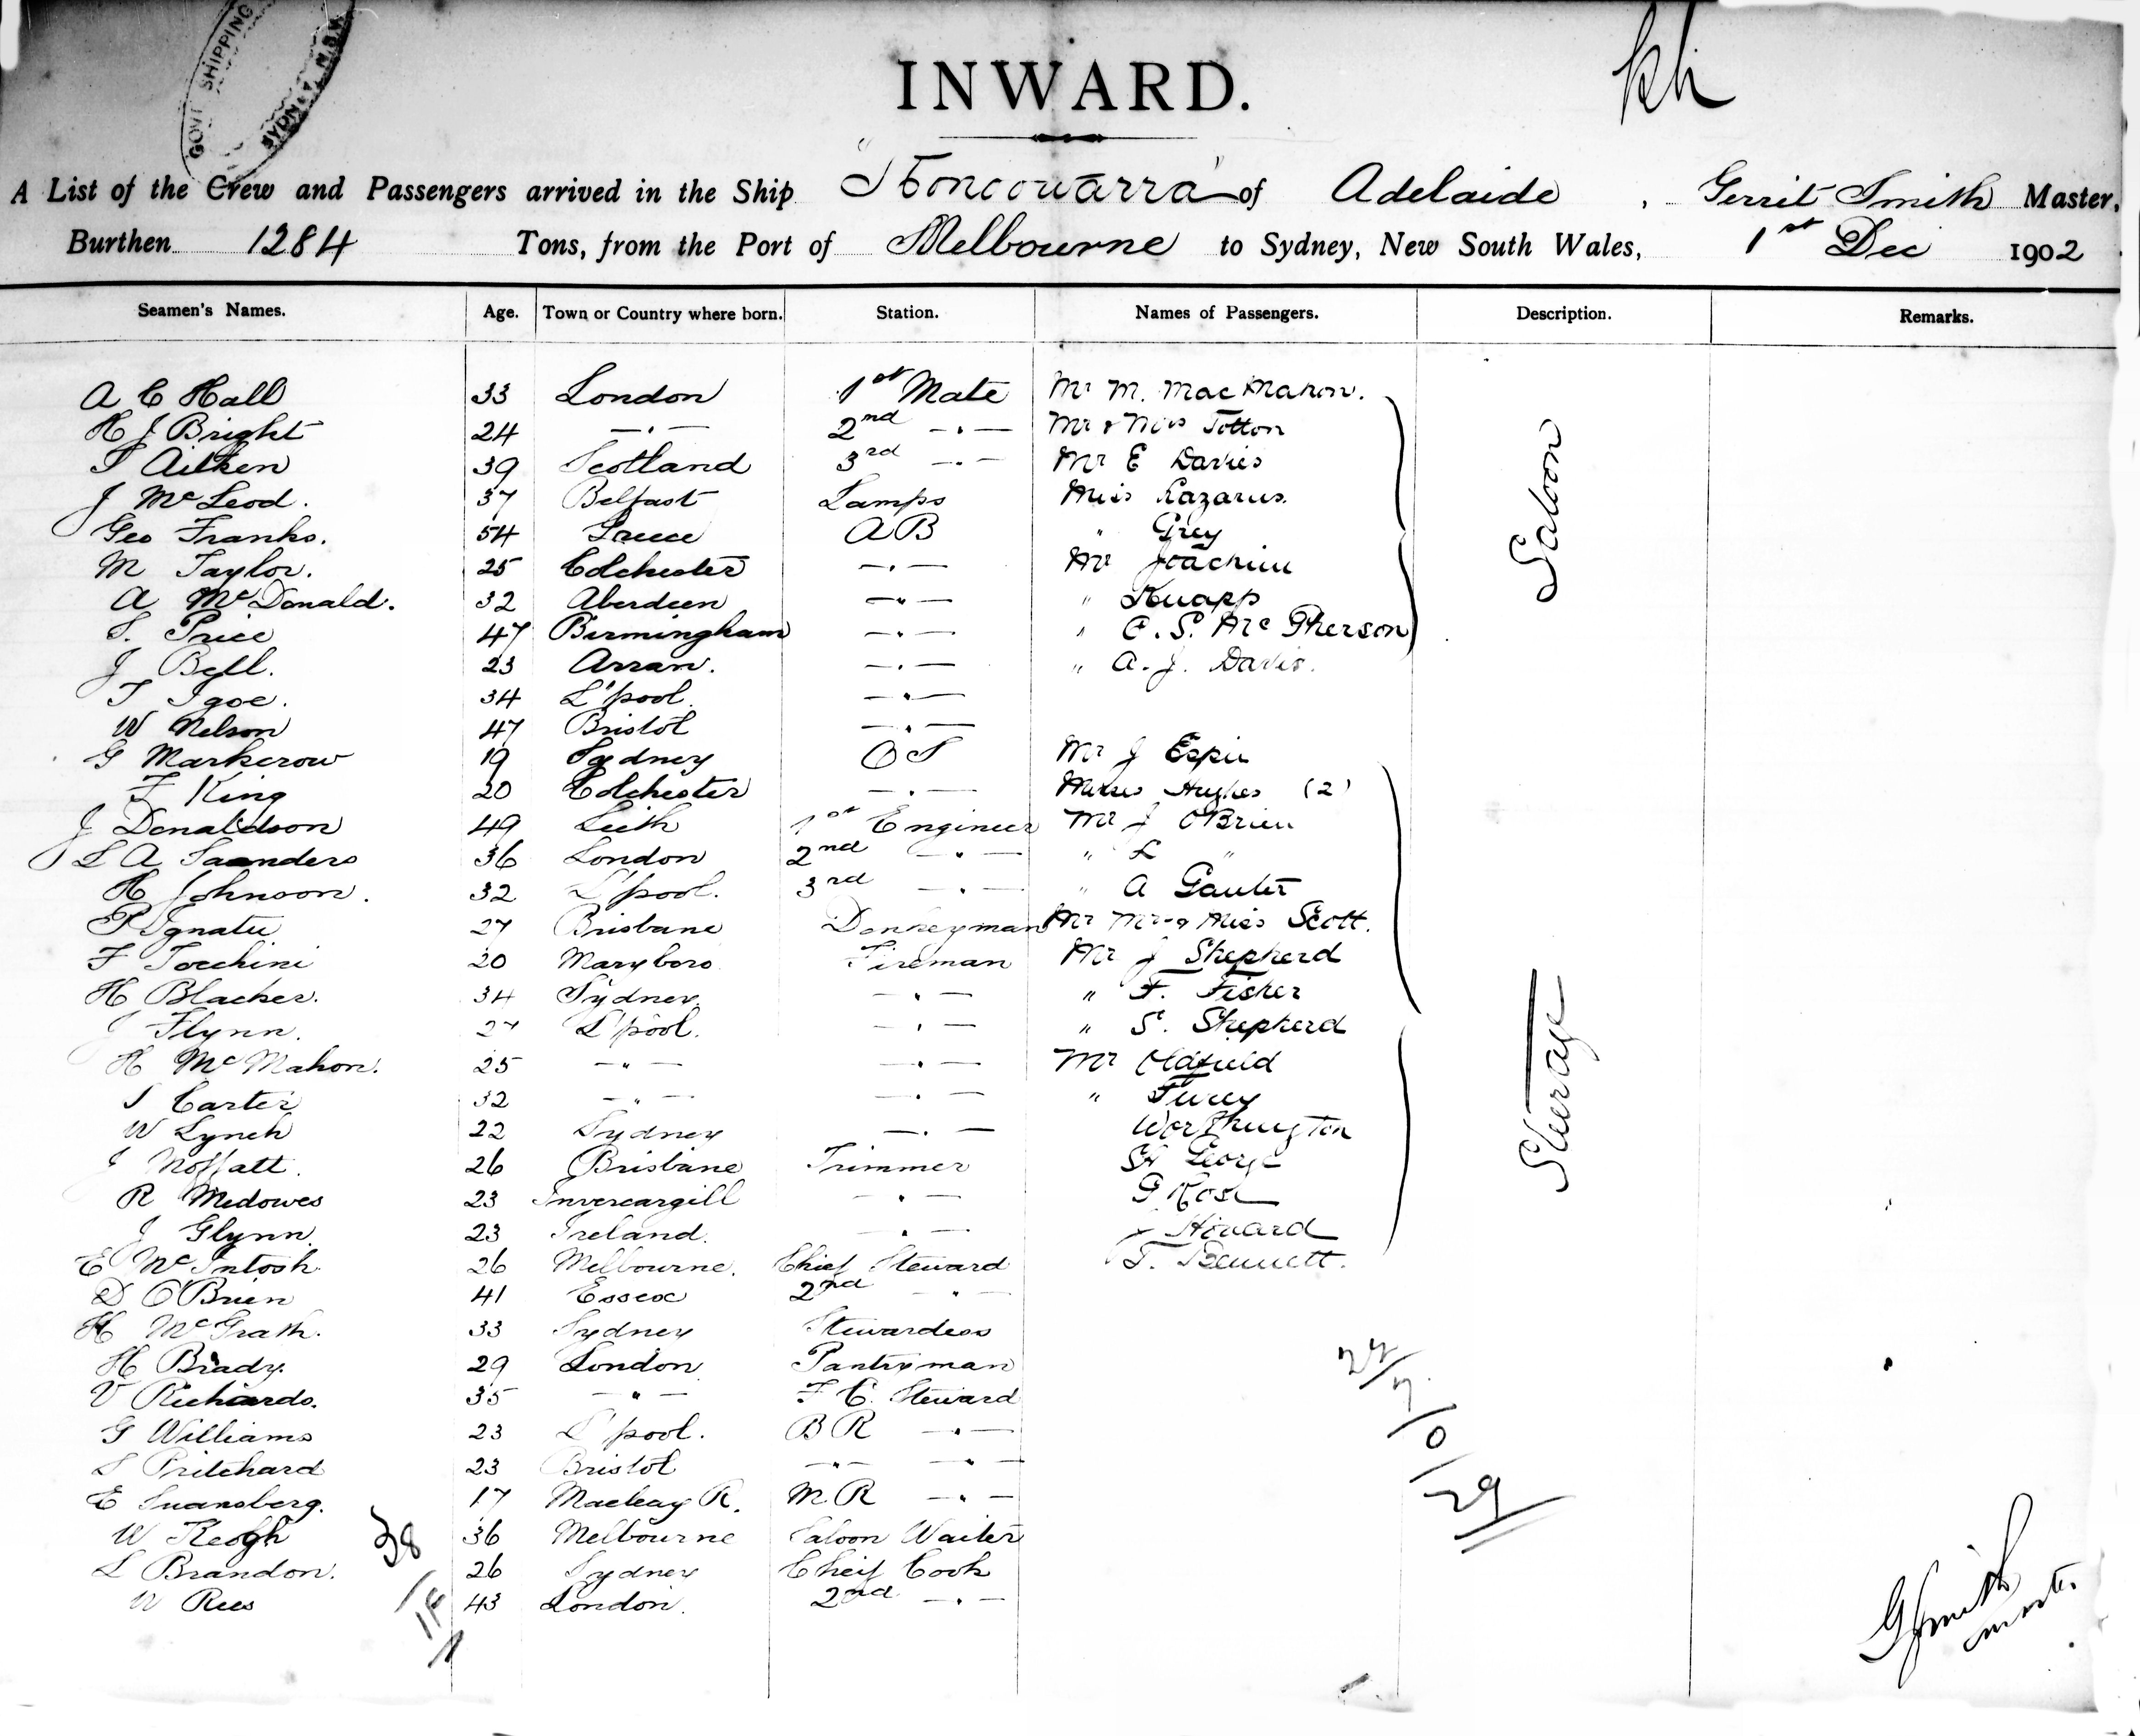 GOVT SHIPPING
SYDNEY, N.S.W.
INWARD.
A List of the Crew and Passengers arrived in the Ship "Koncowarra" of Adelaide, Gerrit Smith Master,
Burthen 1284 Tons, from the Port of Melbourne to Sydney, New South Wales, 1st Dec 1902
Seamen's Names. Age. Town or Country where born. Station. Names of Passengers. Description. Remarks.
A C Hall 33 London 1st Mate Mr M. MacMahon.
H J Bright 24 —"— 2nd —"— Mr & Mrs Totton
T Aitken 39 Scotland 3rd —"— Mr E Davies
J McLeod. 37 Belfast Lamps Miss Lazarus.
Geo Franks. 54 Greece AB " Grey
M Taylor. 25 Colchester —"— Mr Joachim
A McDonald. 32 Aberdeen —"— " Knapp
S. Price 47 Birmingham —"— " C. S. McPherson
J Bell. 23 Arran. —"— " A. J. Davis.
T Igoe. 34 L'pool. —"—
W Nelson 47 Bristol —"—
G Markcrow 19 Sydney OS Mr J Espie
F King 20 Colchester —"— Misses Hughes (2)
J Donaldson 49 Leith 1st Engineer Mr J O'Brien
L A Saanders 36 London 2nd —"— " L "
H Johnson. 32 L'pool. 3rd —"— " A Gauter
P Ignatu 27 Brisbane Donkeyman Mr Mrs & Miss Scott.
F Tocchini 20 Maryboro Fireman Mr J Shepherd
H Blacker. 34 Sydney. —"— " F. Fisher
J Flynn. 27 L'pool. —"— " S. Shepherd
H McMahon. 25 —"— —"— Mr Oldfield
S Carter 32 —"— —"— " Furey
W Lynch 22 Sydney —"— Worthington
J Moffatt. 26 Brisbane Trimmer St George
R Medowes 23 Invercargill —"— G Rose
J Glynn. 23 Ireland. —"— Howard
E McIntosh 26 Melbourne. Chief Steward T. Bennett.
D O'Brien 41 Essex 2nd "—
H McGrath. 33 Sydney Stewardess
H Brady. 29 London Pantryman
V Richards. 35 —"— F. C. Steward
G Williams 23 L'pool. BR —"—
S Pritchard 23 Bristol —"— —"—
E Suansberg. 17 Macleay R. M.R —"—
W Keogh 36 Melbourne Saloon Waiter
L Brandon. 26 Sydney Cheif Cook
W Rees 43 London. 2nd —"—
Saloon
Steerage
38
1F
29
G Smith